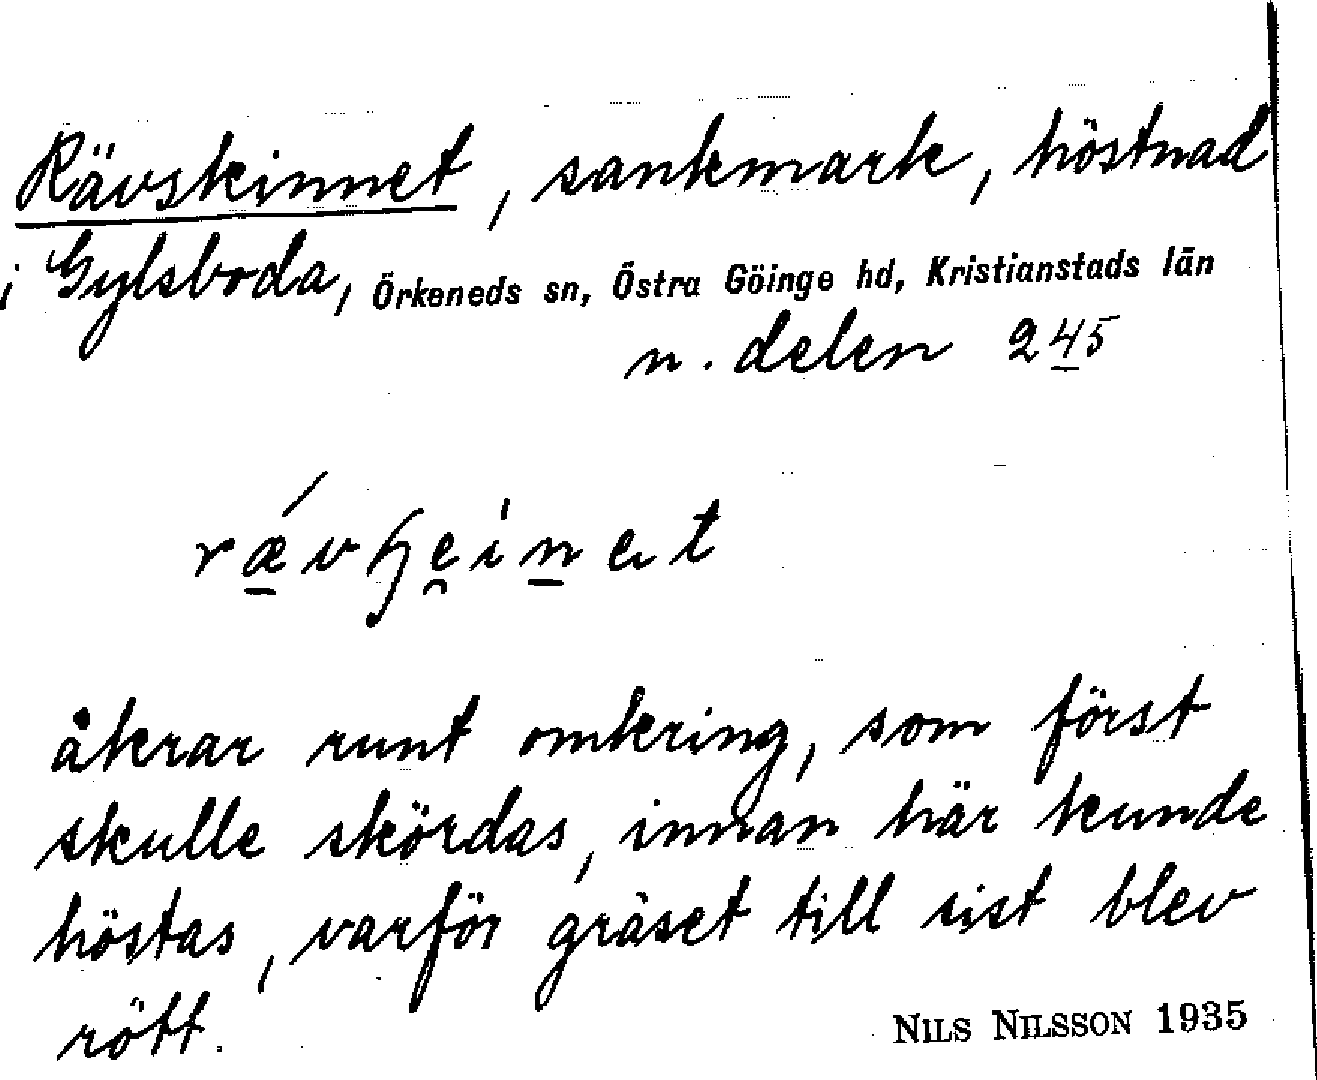 Rävskinnet, sankmark, höstnad
i Gylsboda, Örkeneds sn, Östra Göinge hd, Kristianstads län
n. delen 245
åkrar runt omkring, som först
skulle skördas, innan här kunde
höstas, varför gräset till sist blev
rött.
NILS NILSSON 1935